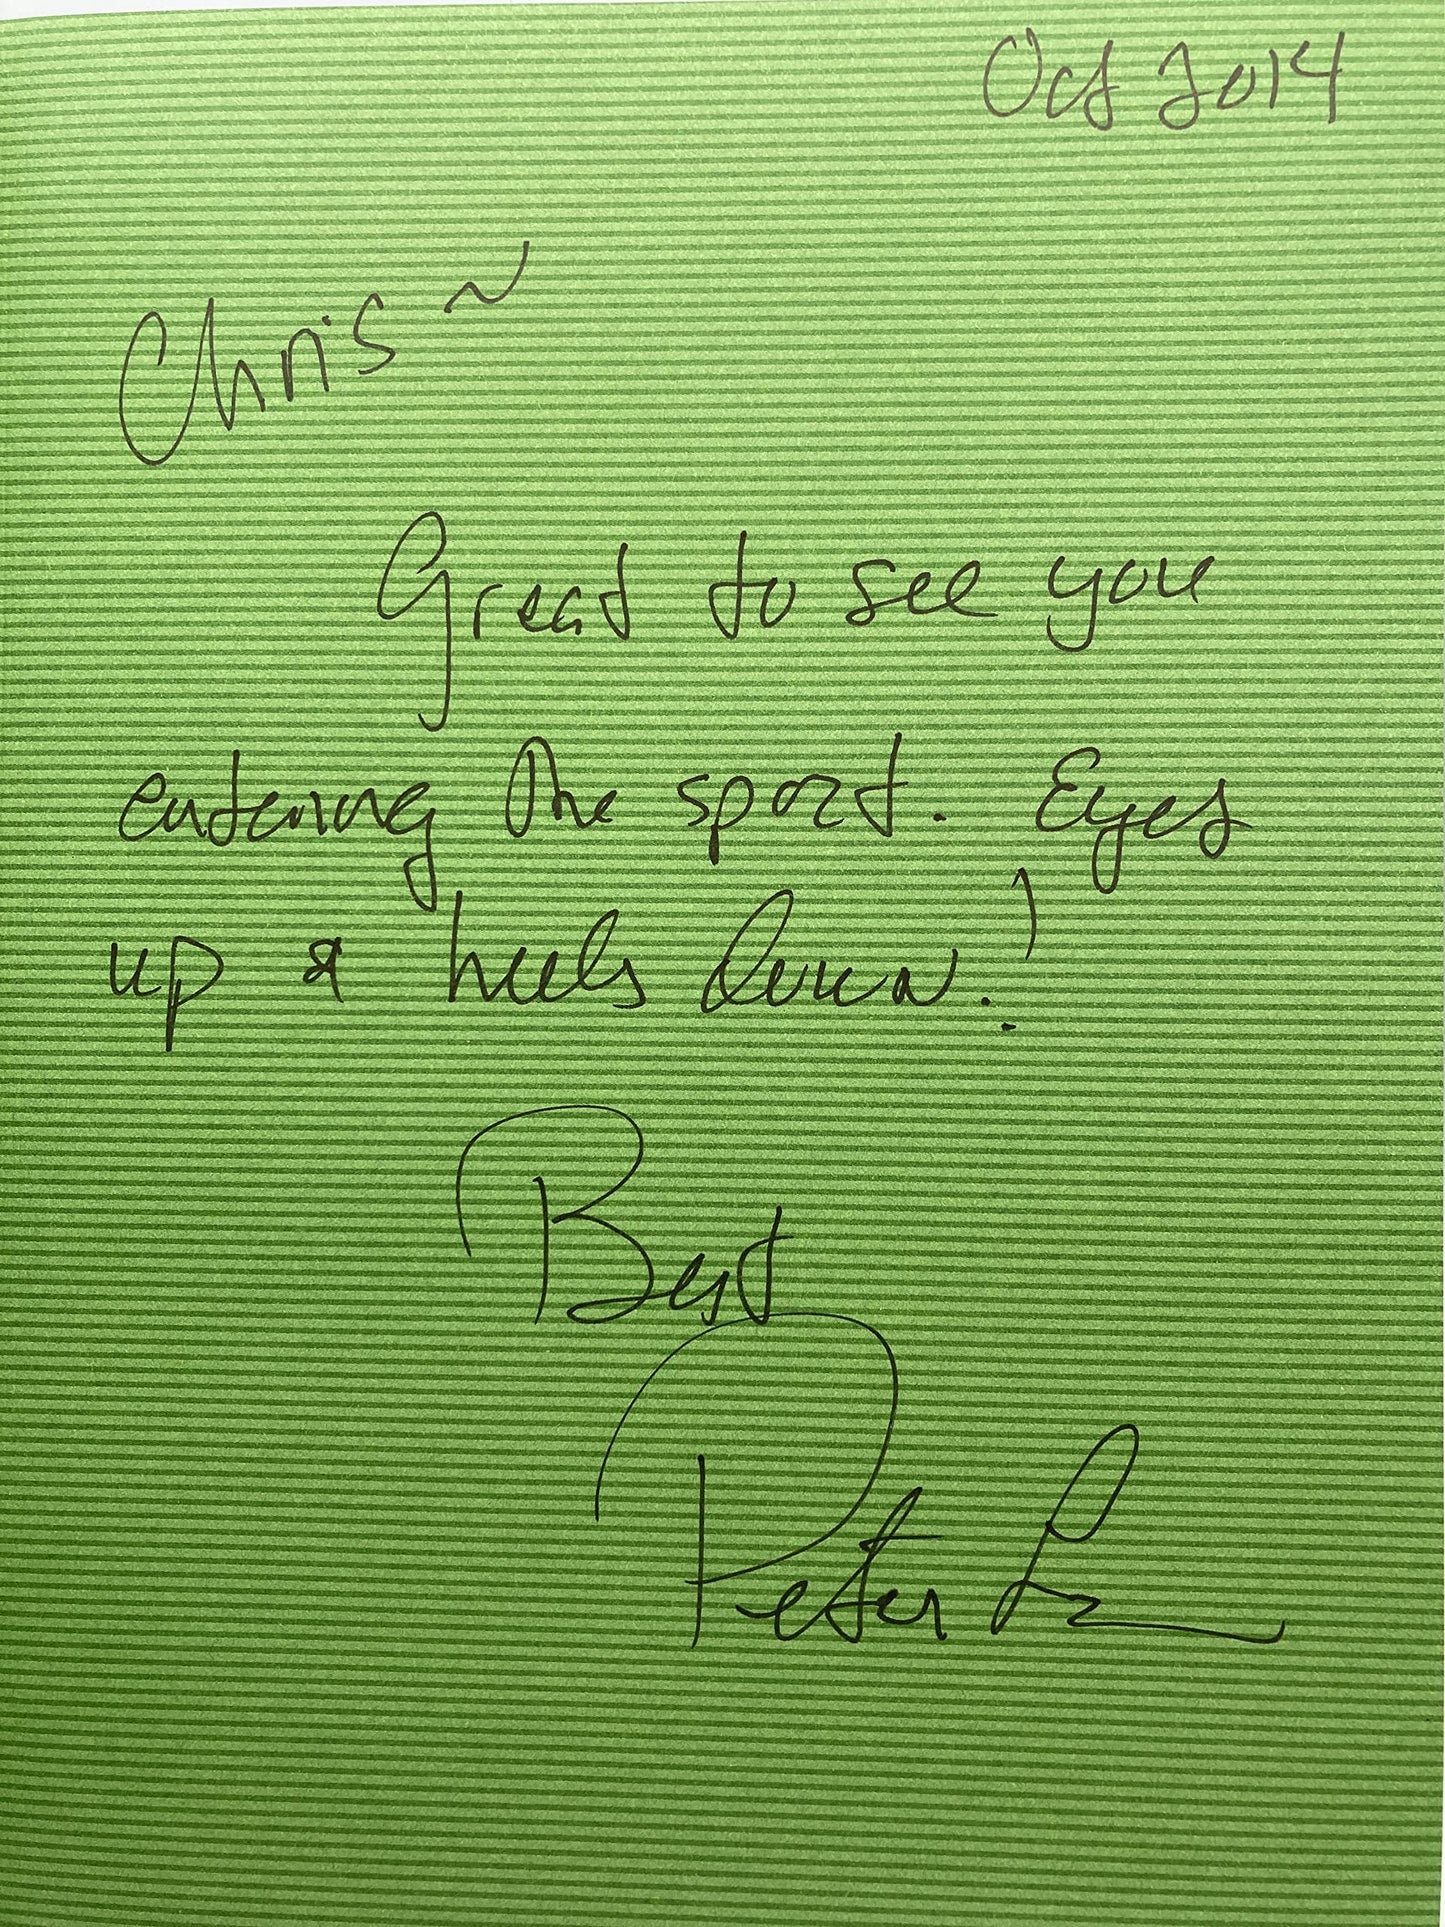 Oct 2014
Chris ~
Great to see you
entering the sport. Eyes
up & heels down.!
Best
Peter